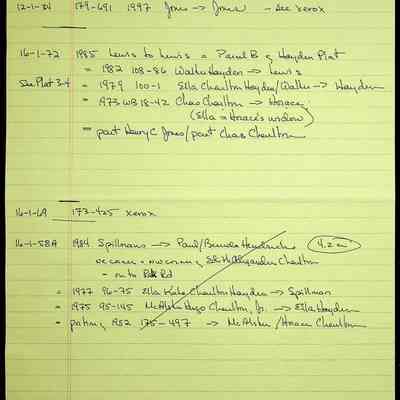 12-1-84 179-691 1997 Jones → Jones - see xerox
16-1-72 1985 Lewis to Lewis = Parcel B of Hayden Plat
= 1982 108-86 Walter Hayden → Lewis
See Plat 3-4 = 1979 100-1 Ella Chaulton Hayden/Walter → Hayden
= 1973 WB 18-42 Chas Chaulton → Horace
(Ella = Horace's widow)
= part Henry C Jones/part Chas Chaulton
16-1-69 173-425 xerox
16-1-58A 1984 Spillmans → Paul/ Hendricks 4.2 ac
NW corning Chaulton
- on to Rd
= 1977 96-75 Ella Kate Chaulton Hayden → Spillman
= 1975 95-145 McAlster Hugo Chaulton, Jr. → Ella Hayden
= 1952 175-497 → McAlster /Horace Chaulton